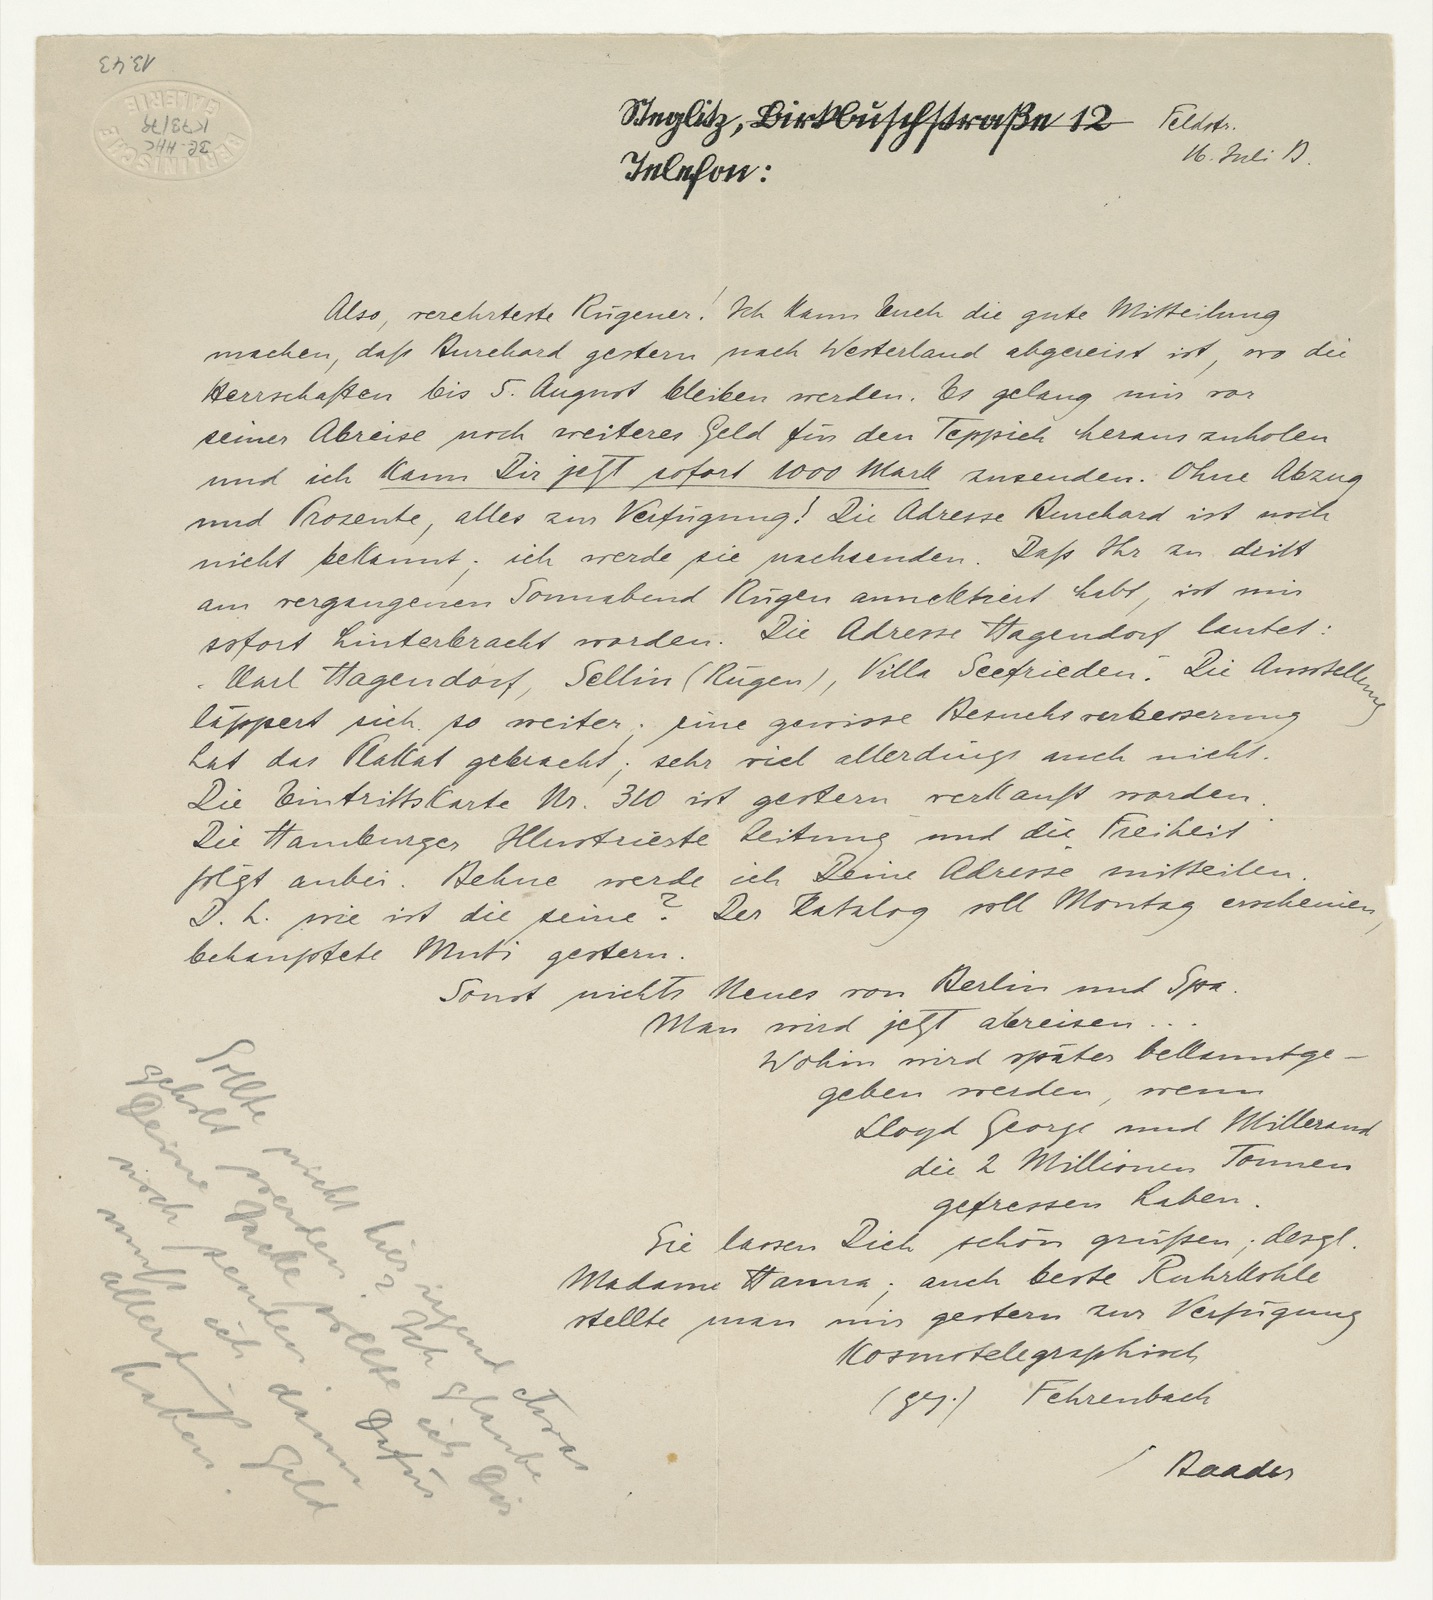 13.43
BERLINISCHE GALERIE
BG-HHC
K 73/79
Steglitz, Birkbuschstraße 12 Feldstr.
16. Juli B.
Telefon:
Also, verehrteste Rügener! Ich kann Euch die gute Mitteilung
machen, daß Burchard gestern nach Westerland abgereist ist, wo die
Herrschaften bis 5. August bleiben werden. Es gelang mir vor
seiner Abreise noch weiteres Geld für den Teppich herauszuholen
und ich kann Dir jetzt sofort 1000 Mark zusenden. Ohne Abzug
und Prozente, alles zur Verfügung! Die Adresse Burchard ist noch
nicht bekannt; ich werde sie nachsenden. Daß Ihr zu dritt
am vergangenen Sonnabend Rügen annektiert habt, ist mir
sofort hinterbracht worden. Die Adresse Hagendorf lautet:
Karl Hagendorf, Sellin (Rügen), Villa Seefrieden. Die Ausstellung
läppert sich so weiter; eine gewisse Besuchsverbesserung
hat das Plakat gebracht; sehr viel allerdings auch nicht.
Die Eintrittskarte Nr. 310 ist gestern verkauft worden.
Die Hamburger Illustrierte Zeitung und die Freiheit
folgt anbei. Behne werde ich Deine Adresse mitteilen.
D. h. wie ist die seine? Der Katalog soll Montag erscheinen,
behauptete Muti gestern.
Sonst nichts Neues von Berlin und Spa.
Man wird jetzt abreisen...
Wohin wird später bekanntge-
geben werden, wenn
Lloyd George und Millerand
die 2 Millionen Tonnen
gefressen haben.
Sie lassen Dich schön grüßen; desgl.
Madame Hanna; auch beste Ruhrkohle
stellte man mir gestern zur Verfügung
Kosmotelegraphisch
(gez.) Fehrenbach
/ Baader
Sollte nicht hier irgend etwas
geholt werden? Ich glaube
Deine Jacke sollte ich Dir
noch senden. Dafür
muß ich dann
allerdings Geld
haben.